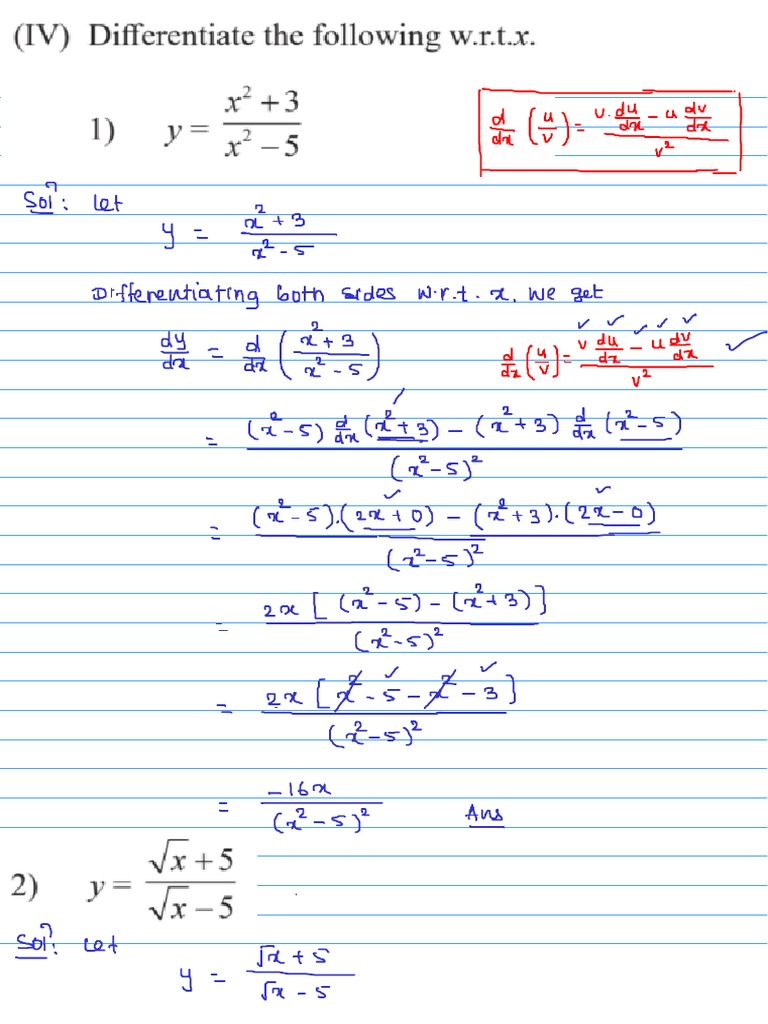 (IV) Differentiate the following w.r.t.x.
1) y = (x² + 3)/(x² − 5)
d/dx (u/v) = (v. du/dx − u dv/dx)/v²
Solⁿ: Let
y = (x² + 3)/(x² − 5)
Differentiating both sides w.r.t. x, we get
dy/dx = d/dx ((x² + 3)/(x² − 5))
d/dx (u/v) = (v du/dx − u dv/dx)/v² ✓
= ((x² − 5) d/dx (x² + 3) − (x² + 3) d/dx (x² − 5))/(x² − 5)²
= ((x² − 5).(2x + 0) − (x² + 3).(2x − 0))/(x² − 5)²
= 2x [(x² − 5) − (x² + 3)]/(x² − 5)²
= 2x [x² − 5 − x² − 3]/(x² − 5)²
= −16x/(x² − 5)² Ans
2) y = (√x + 5)/(√x − 5)
Solⁿ: Let
y = (√x + 5)/(√x − 5)